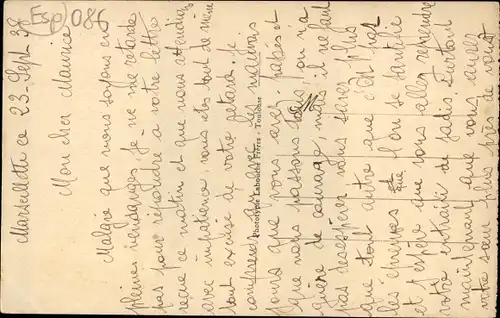 (Esp) 086
Marseillette ce 23-Sept 38
Mon cher Maurice
Malgré que nous soyons en
pleines vendanges je ne me retarde
pas pour répondre à votre lettre
reçue ce matin et que nous attendions
avec impatience, vous êtes tout de même
tout excusé de votre retard. Je
comprends qu'avec les mauvais
jours que nous avez passés et
que nous passons tous, on n'a
guère de courage, mais il ne faut
pas désespérer vous savez plus
que tout autre que c'est par
les épreuves que l'on se fortifie
et j'espère que vous allez reprendre
votre entrain de jadis. Surtout
maintenant que vous avez
votre sœur plus près de vous
Phototypie Labouche Frères - Toulouse